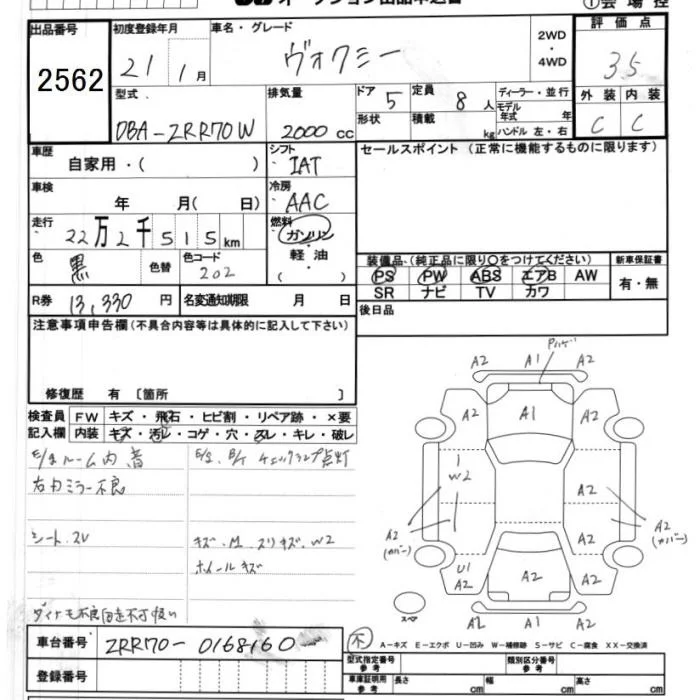 出品番号
2562
初度登録年月
21 1月
車名・グレード
ヴォクシー
2WD
・
4WD
評価点
3.5
外装 内装
C C
型式
DBA-ZRR70W
排気量
2000 cc
ドア 5
形状
定員 8人
積載 kg
ディーラー・並行
モデル
年式 年
ハンドル 左・右
車歴
自家用・( )
シフト
IAT
車検
年 月( 日)
冷房
AAC
走行
22万2千515km
燃料
ガソリン
軽・油
( )
色
黒
色替
色コード
202
R券 13,330円
名変通知期限 月 日
セールスポイント(正常に機能するものに限ります)
装備品・(純正品に限り○をつけてください)
PS PW ABS エアB AW
SR ナビ TV カワ
新車保証書
有・無
後日品
注意事項申告欄(不具合内容等は具体的に記入して下さい)
修復歴 有〔箇所 〕
検査員
記入欄
FW キズ・飛石・ヒビ割・リペア跡・×要
内装 キズ・汚レ・コゲ・穴・スレ・キレ・破レ
E/gルーム内 音
E/g, B/t チェックランプ点灯
右カミラー不良
シート、スレ
キズ、M、スリキズ、W2
ホイールキズ
ダイナモ不良自走不可扱い
Pハゲ
A2 A1 A2
A2 A1 A2
1
W2
A2
A2
(カバー)
A2
(カバー)
U1
A2
A2
A2
A2 A1 A2
スペア
車台番号
ZRR70-0168160
登録番号
不
A-キズ E-エクボ U-凹み W-補修跡 S-サビ C-腐食 XX-交換済
型式指定番号
参考
類別区分番号
参考
車庫証明用
参考
長さ cm
幅 cm
高さ cm